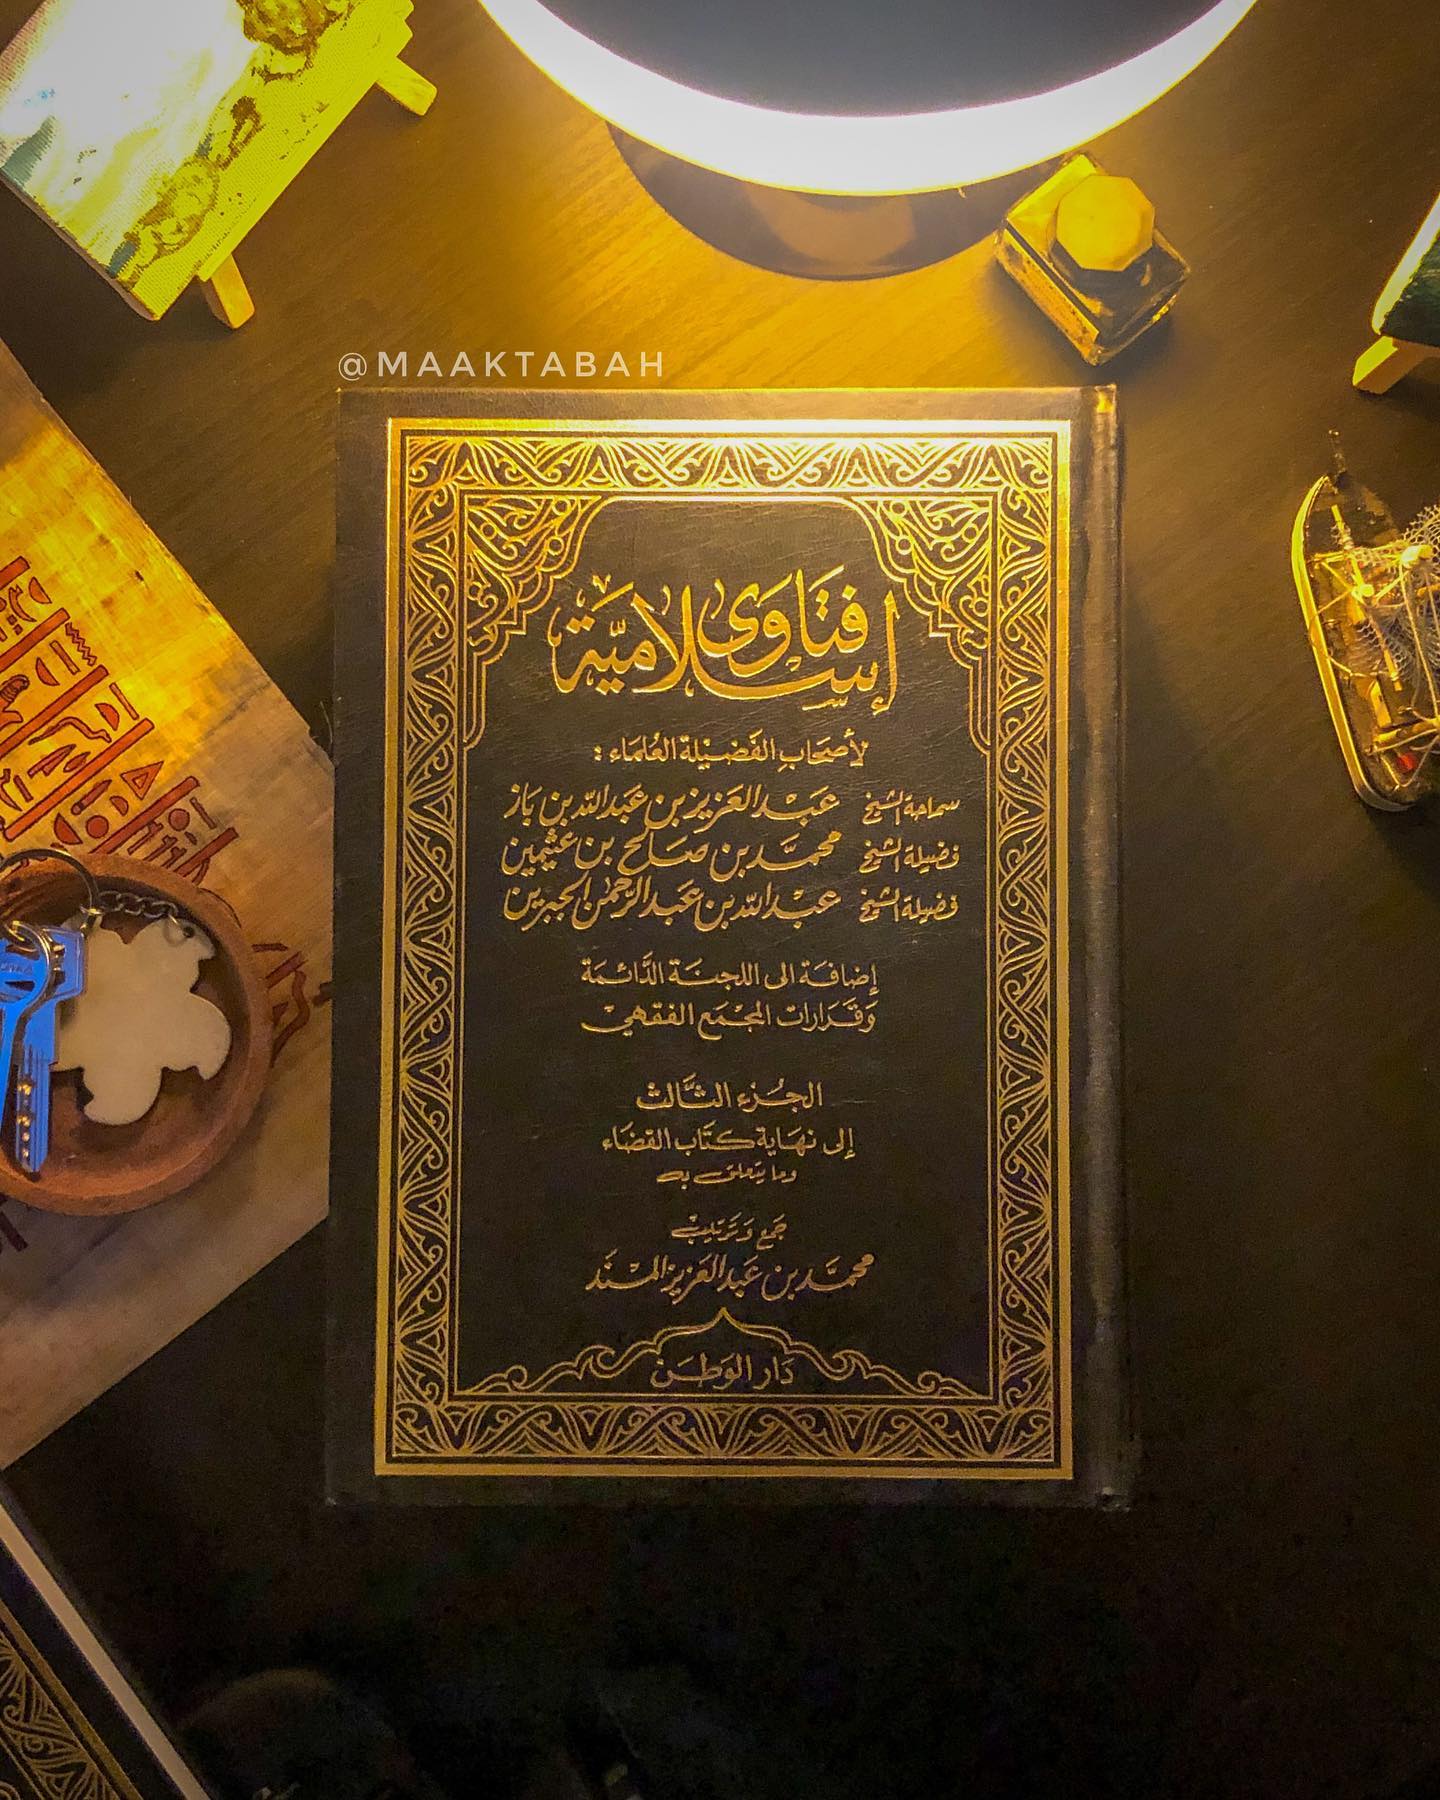 @MAAKTABAH
فتاوى
إسلامية
لأصحاب الفضيلة العلماء :
سماحة الشيخ عبد العزيز بن عبد الله بن باز
فضيلة الشيخ محمد بن صالح بن عثيمين
فضيلة الشيخ عبد الله بن عبد الرحمن الجبرين
إضافة الى اللجنة الدائمة
وقرارات المجمع الفقهي
الجزء الثالث
إلى نهاية كتاب القضاء
وما يتعلق به
جمع وترتيب
محمد بن عبد العزيز المسند
دار الوطن